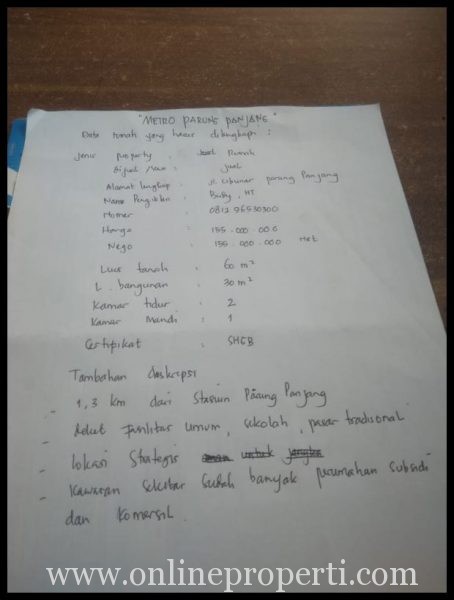 "METRO PARUNG PANJANG"
Data tanah yang harus dilengkapi :
Jenis property : Rumah
Dijual / Sewa : jual
Alamat lengkap : Jl. Cibunar parung Panjang
Nama Pengiklan : Buby, HT
Nomer : 0812 96530300
Harga : 155.000.000
Nego : 155.000.000 net
Luas tanah : 60 m²
L. bangunan : 30 m²
Kamar tidur : 2
Kamar Mandi : 1
Certipikat : SHGB
Tambahan deskripsi
- 1,3 km dari Stasiun Parung Panjang
- dekat fasilitas umum, sekolah, pasar tradisonal
- lokasi Strategis
- Kawasan sekitar sudah banyak perumahan subsidi
dan komersil.
www.onlineproperti.com